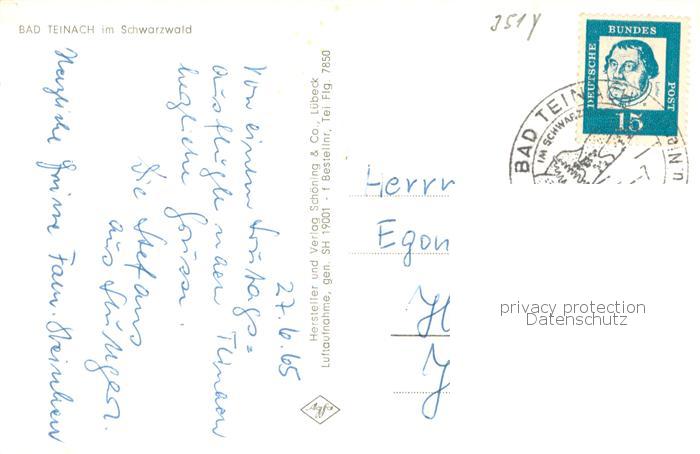 BAD TEINACH im Schwarzwald
351Y
27.6.65
Von einem Sonntags=
ausfluge nach Teinach
herzliche Grüsse.
Die Stefans
aus Stuttgart.
Herzliche Grüsse Fam.
Hersteller und Verlag Schöning & Co., Lübeck
Luftaufnahme, gen. SH 19001 - f Bestellnr, Tei Flg 7850
Agfa
DEUTSCHE BUNDES POST
15
BAD TEINACH
IM SCHWARZ
Herrn
Egon
privacy protection
Datenschutz